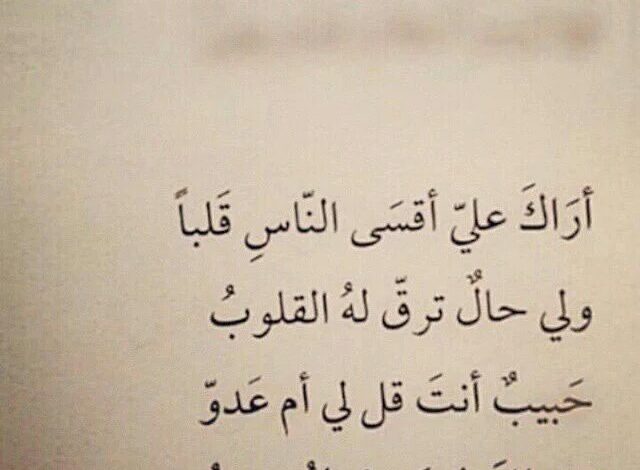 أرَاكَ عليّ أقسَى النّاسِ قَلباً
ولي حالٌ ترقّ لهُ القلوبُ
حَبيبٌ أنتَ قل لي أم عَدوّ